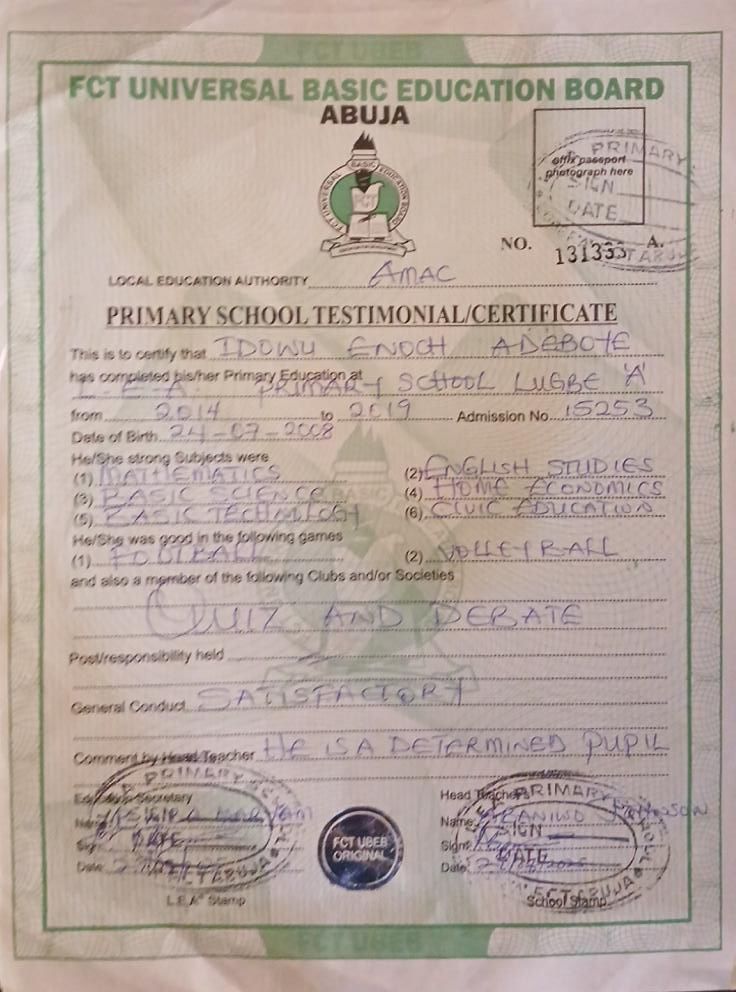 FCT UBEB
FCT UNIVERSAL BASIC EDUCATION BOARD
ABUJA
affix passport
photograph here
PRIMARY
SIGN
DATE
FCT UNIVERSAL BASIC EDUCATION BOARD
FCT
NO. 131333 A.
LOCAL EDUCATION AUTHORITY AMAC
PRIMARY SCHOOL TESTIMONIAL/CERTIFICATE
This is to certify that IDOWU ENOCH ADEBOYE
has completed his/her Primary Education at
L.E.A PRIMARY SCHOOL LUGBE 'A'
from 2014 to 2019 Admission No. 15253
Date of Birth 24-07-2008
He/She strong Subjects were
(1) MATHEMATICS (2) ENGLISH STUDIES
(3) BASIC SCIENCE (4) HOME ECONOMICS
(5) BASIC TECHNOLOGY (6) CIVIC EDUCATION
He/She was good in the following games
(1) FOOTBALL (2) VOLLEYBALL
and also a member of the following Clubs and/or Societies
QUIZ AND DEBATE
Post/responsibility held
General Conduct SATISFACTORY
Comment by Head Teacher HE IS A DETERMINED PUPIL
Education Secretary Head Teacher's
Name MARYAM Name:
Sign Sign:
Date Date:
PRIMARY SCHOOL
DATE
FCT ABUJA
FCT UBEB
ORIGINAL
PRIMARY SCHOOL
SIGN
DATE
FCT ABUJA
L.E.A Stamp School Stamp
FCT UBEB